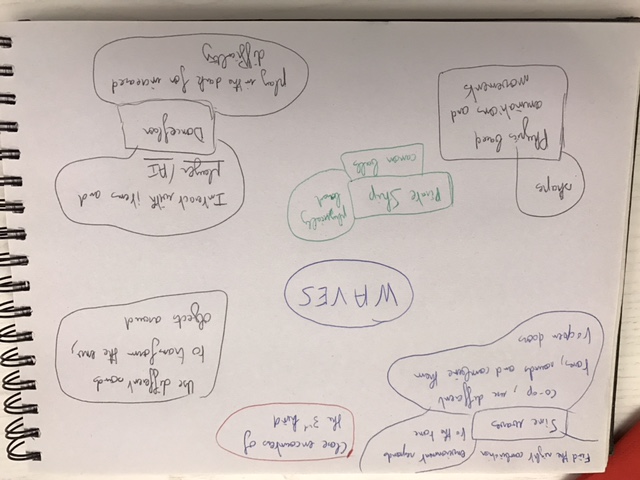 Find the right combination
environment responds
to the tone
Sine waves
Co-op, use different
tones, sounds and combine them
to open doors
Close encounters of
the 3rd kind
Use different sounds
to transform the env,
objects around
WAVES
shapes
Physics based
animations and
movements
Pirate Ship
physically
based
canon balls
Interact with items and
player / AI
Dancefloor
play in the dark for increased
difficulty